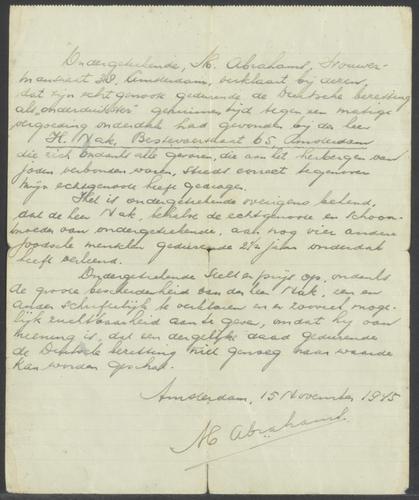 Ondergetekende, M. Abrahams, Houwer-
manstraat 38, Amsterdam, verklaart bij dezen,
dat zijn echtgenoote gedurende de Duitsche bezetting
als „onderduikster" geruimen tijd tegen een matige
vergoeding onderdak had gevonden bij den heer
H. Nak, Bestevaerstraat 65, Amsterdam
die zich ondanks alle gevaren, die aan het herbergen van
Joden verbonden waren, steeds correct tegenover
mijn echtgenoote heeft gedragen.
Het is ondergetekende overigens bekend,
dat de heer Nak, behalve de echtgenoote en schoon-
moeder van ondergetekende, aan nog vier andere
Joodsche menschen gedurende 2½ jaar onderdak
heeft verleend.
Ondergetekende stelt er prijs op, ondanks
de groote bescheidenheid van den heer Nak, een en
ander schriftelijk te verklaren en er zooveel moge-
lijk ruchtbaarheid aan te geven, omdat hij van
meening is, dat een dergelijke daad gedurende
de Duitsche bezetting niet genoeg naar waarde
kan worden geschat.
Amsterdam, 15 November 1945
M Abrahams